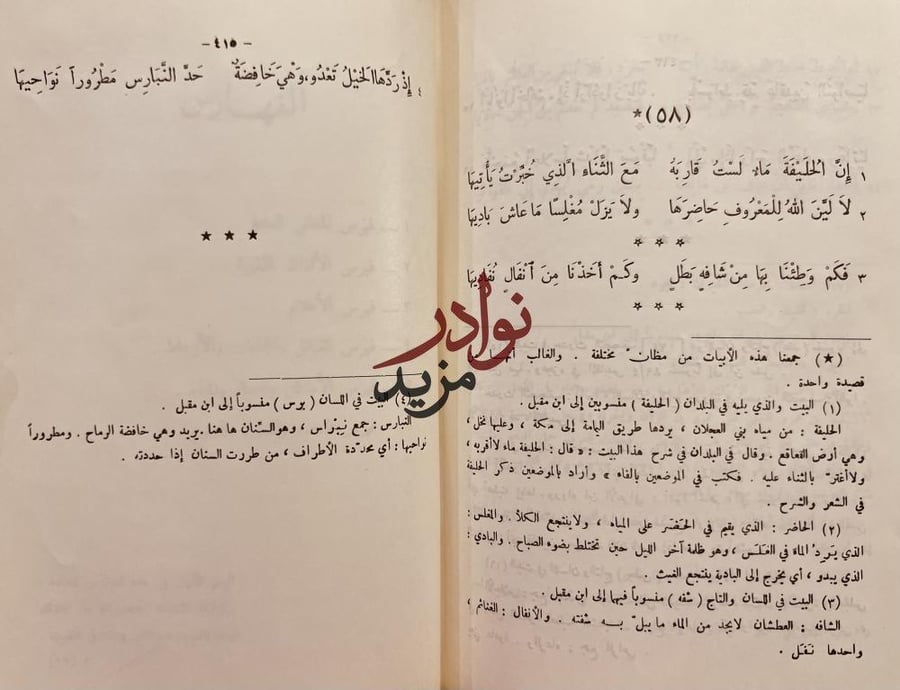 (٥٨)*
١ إِنَّ الْخَلِيْفَةَ مَاءٌ لَسْتُ قَارِبَهُ مَعَ الثَّنَاءِ الَّذِي خُبِّرْتُ يَأْتِيهَا
٢ لاَ لَيَّنَ اللهُ لِلْمَعْرُوفِ حَاضِرَهَا ولاَ يَزَلْ مُغْلِسًا مَا عَاشَ بَادِيهَا
* * *
٣ فَكَمْ وَطِئْنَا بِهَا مِنْ شَافِهٍ بَطَلٍ وكَمْ أَخَذْنَا مِنَ انْفَالٍ نُفَادِيهَا
* * *
(★) جمعنا هذه الأبيات من مظانّ مختلفة . والغالب
قصيدة واحدة .
(١) البيت والذي يليه في البلدان ( الخليفة ) منسوبين إلى ابن مقبل .
الخليفة : من مياه بني العجلان ، يردها طريق اليامة إلى مكة ، وعليها نخل ،
وهي أرض القعاقع . وقال في البلدان في شرح هذا البيت : « قال : الخليفة ماء لاأقربه ،
ولاأغترّ بالثناء عليه . فكتب في الموضعين بالفاء » وأراد بالموضعين ذكر الخليفة
في الشعر والشرح .
(٢) الحاضر : الذي يقيم في الحَضَر على المياه ، ولاينتجع الكلأ . والمغلس :
الذي يَرِدُ الماء في الغَلَس ، وهو ظلمة آخر الليل حين تختلط بضوء الصباح . والبادي :
الذي يبدو ، أي يخرج إلى البادية ينتجع الغيث .
(٣) البيت في اللسان والتاج ( شفه ) منسوباً فيهما إلى ابن مقبل .
الشافه : العطشان لايجد من الماء ما يبلّ بــه شفته . والأنفال : الغنائم ،
واحدها نَفَل .
- ٤١٥ -
٤ إِذْ رَدَّهَا الْخَيْلُ تَعْدُو، وَهْيَ خَافِضَةٌ حَدَّ النَّبَارِسِ مَطْرُوراً نَوَاحِيهَا
★ ★ ★
(٤) البيت في اللسان ( برس ) منسوباً إلى ابن مقبل .
النبارس : جمع نِبْرَاس ، وهو السِّنان ها هنا . يريد وهي خافضة الرماح . ومطروراً
نواحيها : أي محدّدة الأطراف ، من طررت السنان إذا حددته .
نوادر
مزيد